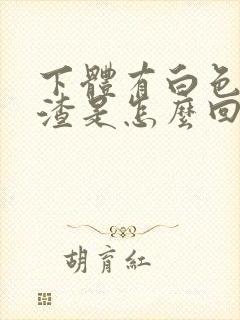 下體有白色
渣是怎麼回
胡育紅